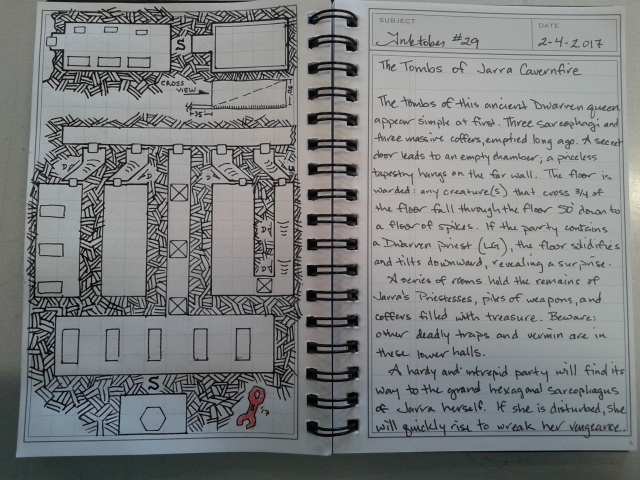 S
CROSS
VIEW
35
50
D
D
D
D
S
'17
SUBJECT
Inktober #29
DATE
2-4-2017
The Tombs of Jarra Cavernfire
The tombs of this ancient Dwarven queen
appear simple at first. Three sarcophagi and
three massive coffers, emptied long ago. A secret
door leads to an empty chamber; a priceless
tapestry hangs on the far wall. The floor is
warded: any creature(s) that cross 3/4 of
the floor fall through the floor 50' down to
a floor of spikes. If the party contains
a Dwarven priest (LG), the floor solidifies
and tilts downward, revealing a surprise.
A series of rooms hold the remains of
Jarra's Priestesses, piles of weapons, and
coffers filled with treasure. Beware:
other deadly traps and vermin are in
these lower halls.
A hardy and intrepid party will find its
way to the grand hexagonal sarcophagus
of Jarra herself. If she is disturbed, she
will quickly rise to wreak her vengeance.